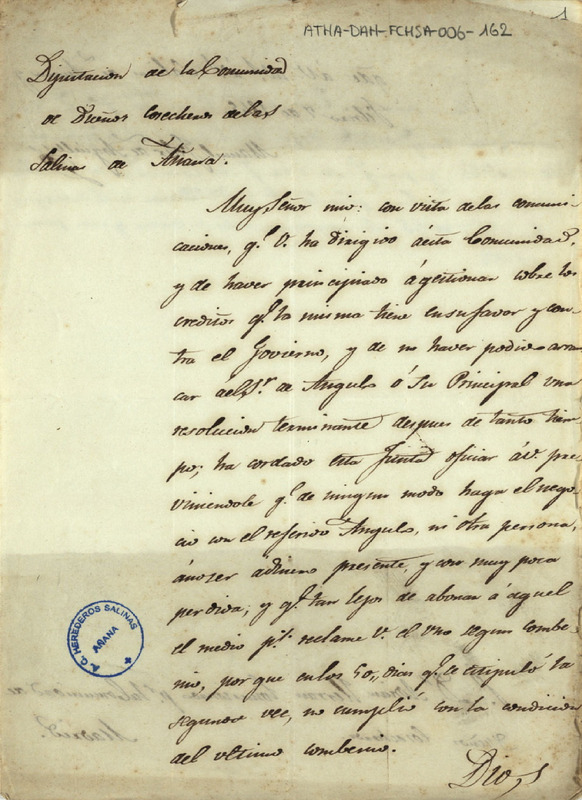 1
ATHA-DAH-FCHSA-006-162
Diputacion de la Comunidad
de Dueños Cosecheros de las
Salinas de Añana.
Muy Señor mio: con vista de las comuni-
caciones, q.e V. ha dirigido á esta Comunidad,
y de haver principiado á gestionar sobre los
creditos q.e la misma tiene en su favor y con-
tra el Govierno, y de no haver podido arran
car del S.r de Angulo ó su Principal una
resolucion terminante despues de tanto tiem-
po; ha cordado esta Junta oficiar á V. pre-
viniendole q.e de ningun modo haga el nego-
cio con el referido Angulo, ni otra persona,
á no ser á dinero presente, y con muy poca
perdida; y q.e tan lejos de abonar á aquel
el medio p.% reclame V. el uno segun combe-
nio, por que en los 50, dias q.e se estipuló la
segunda vez, no cumplió con la condicion
del ultimo combenio.
Dios
A. C. HEREDEROS SALINAS
AÑANA